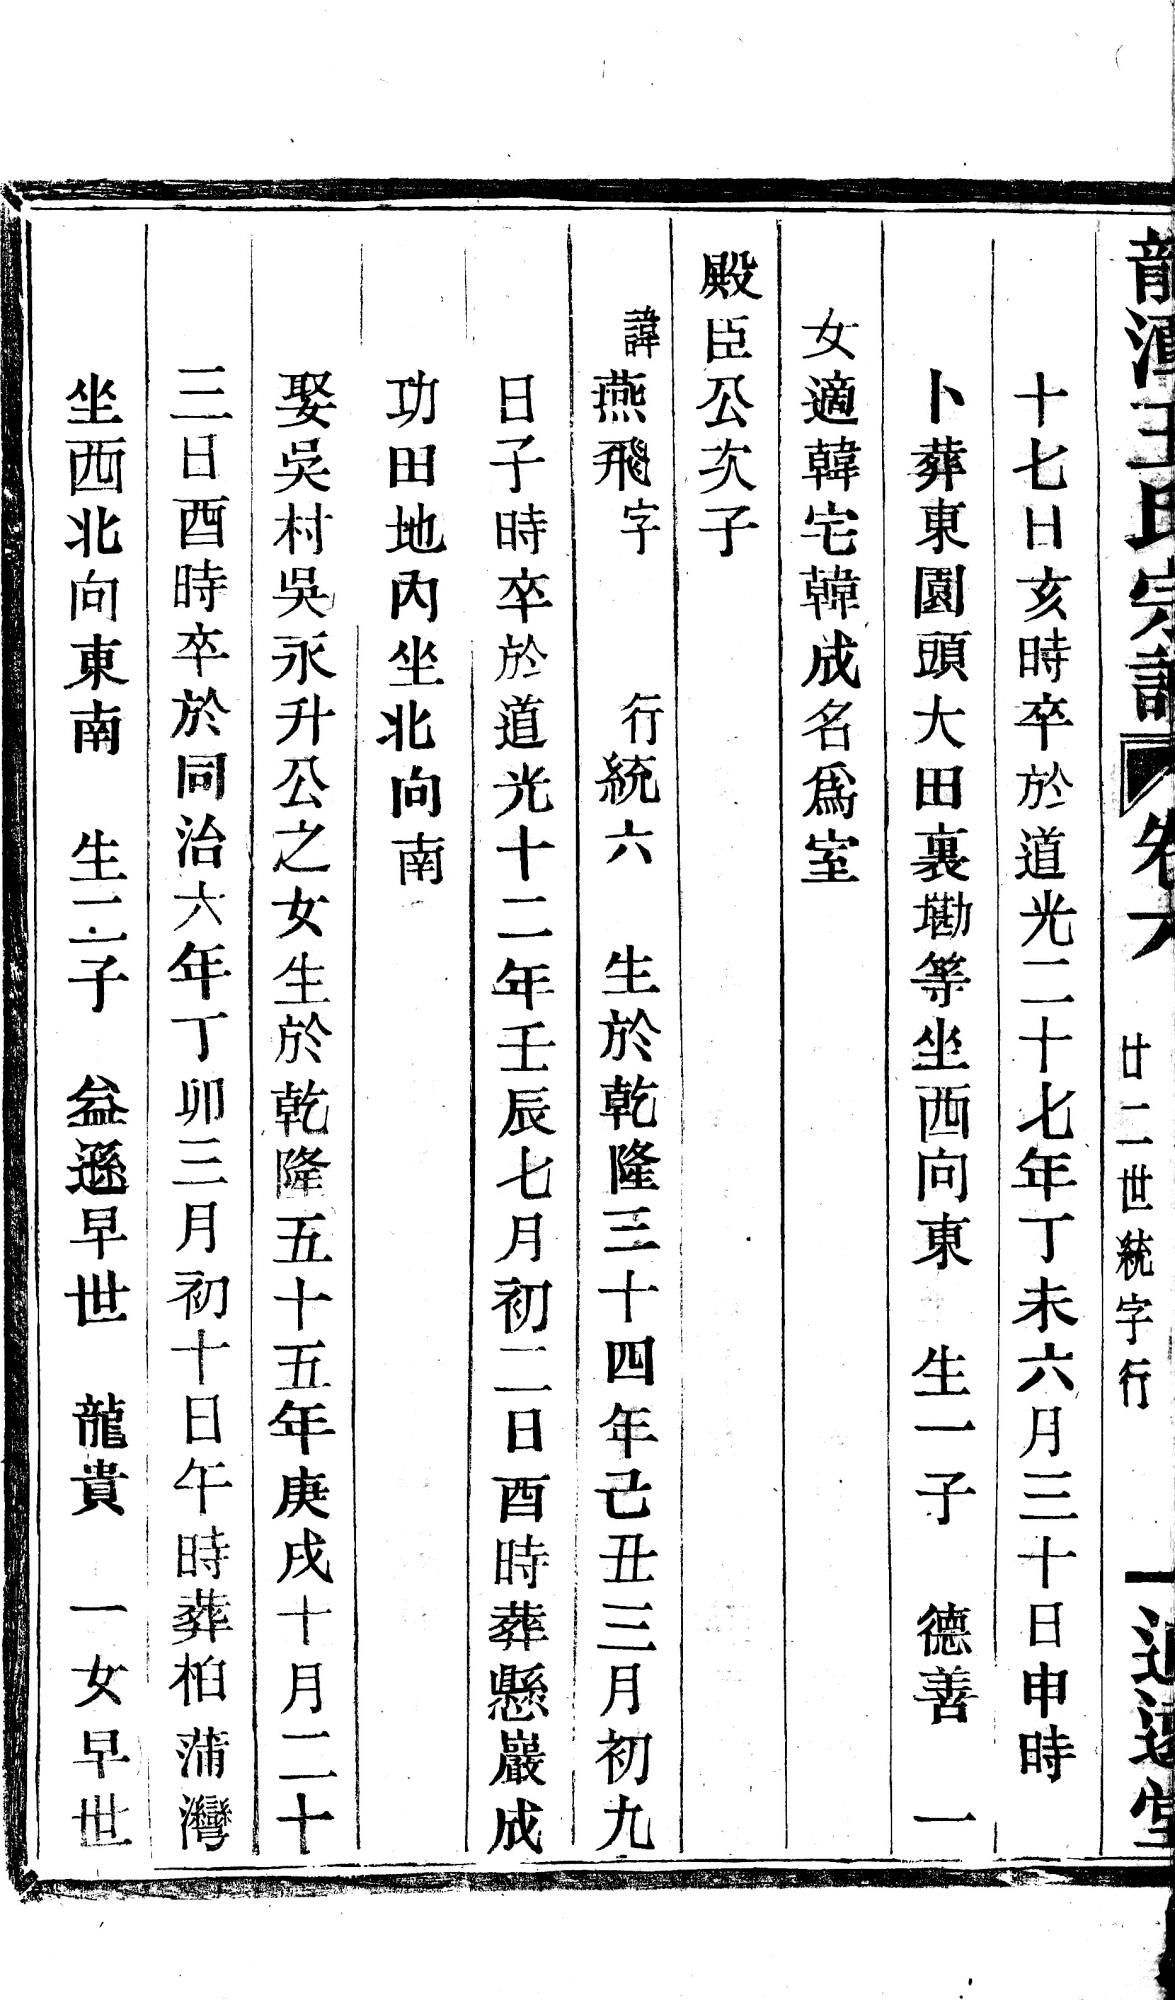 龍潭王氏宗譜 卷六 廿二世統字行 一 追遠堂
十七日亥時卒於道光二十七年丁未六月三十日申時
卜葬東園頭大田裏墈等坐西向東 生一子 德善 一
女適韓宅韓成名爲室
殿臣公次子
諱燕飛字 行統六 生於乾隆三十四年己丑三月初九
日子時卒於道光十二年壬辰七月初二日酉時葬懸巖成
功田地內坐北向南
娶吳村吳永升公之女生於乾隆五十五年庚戌十月二十
三日酉時卒於同治六年丁卯三月初十日午時葬柏蒲灣
坐西北向東南 生二子 益遜早世 龍貴 一女早世